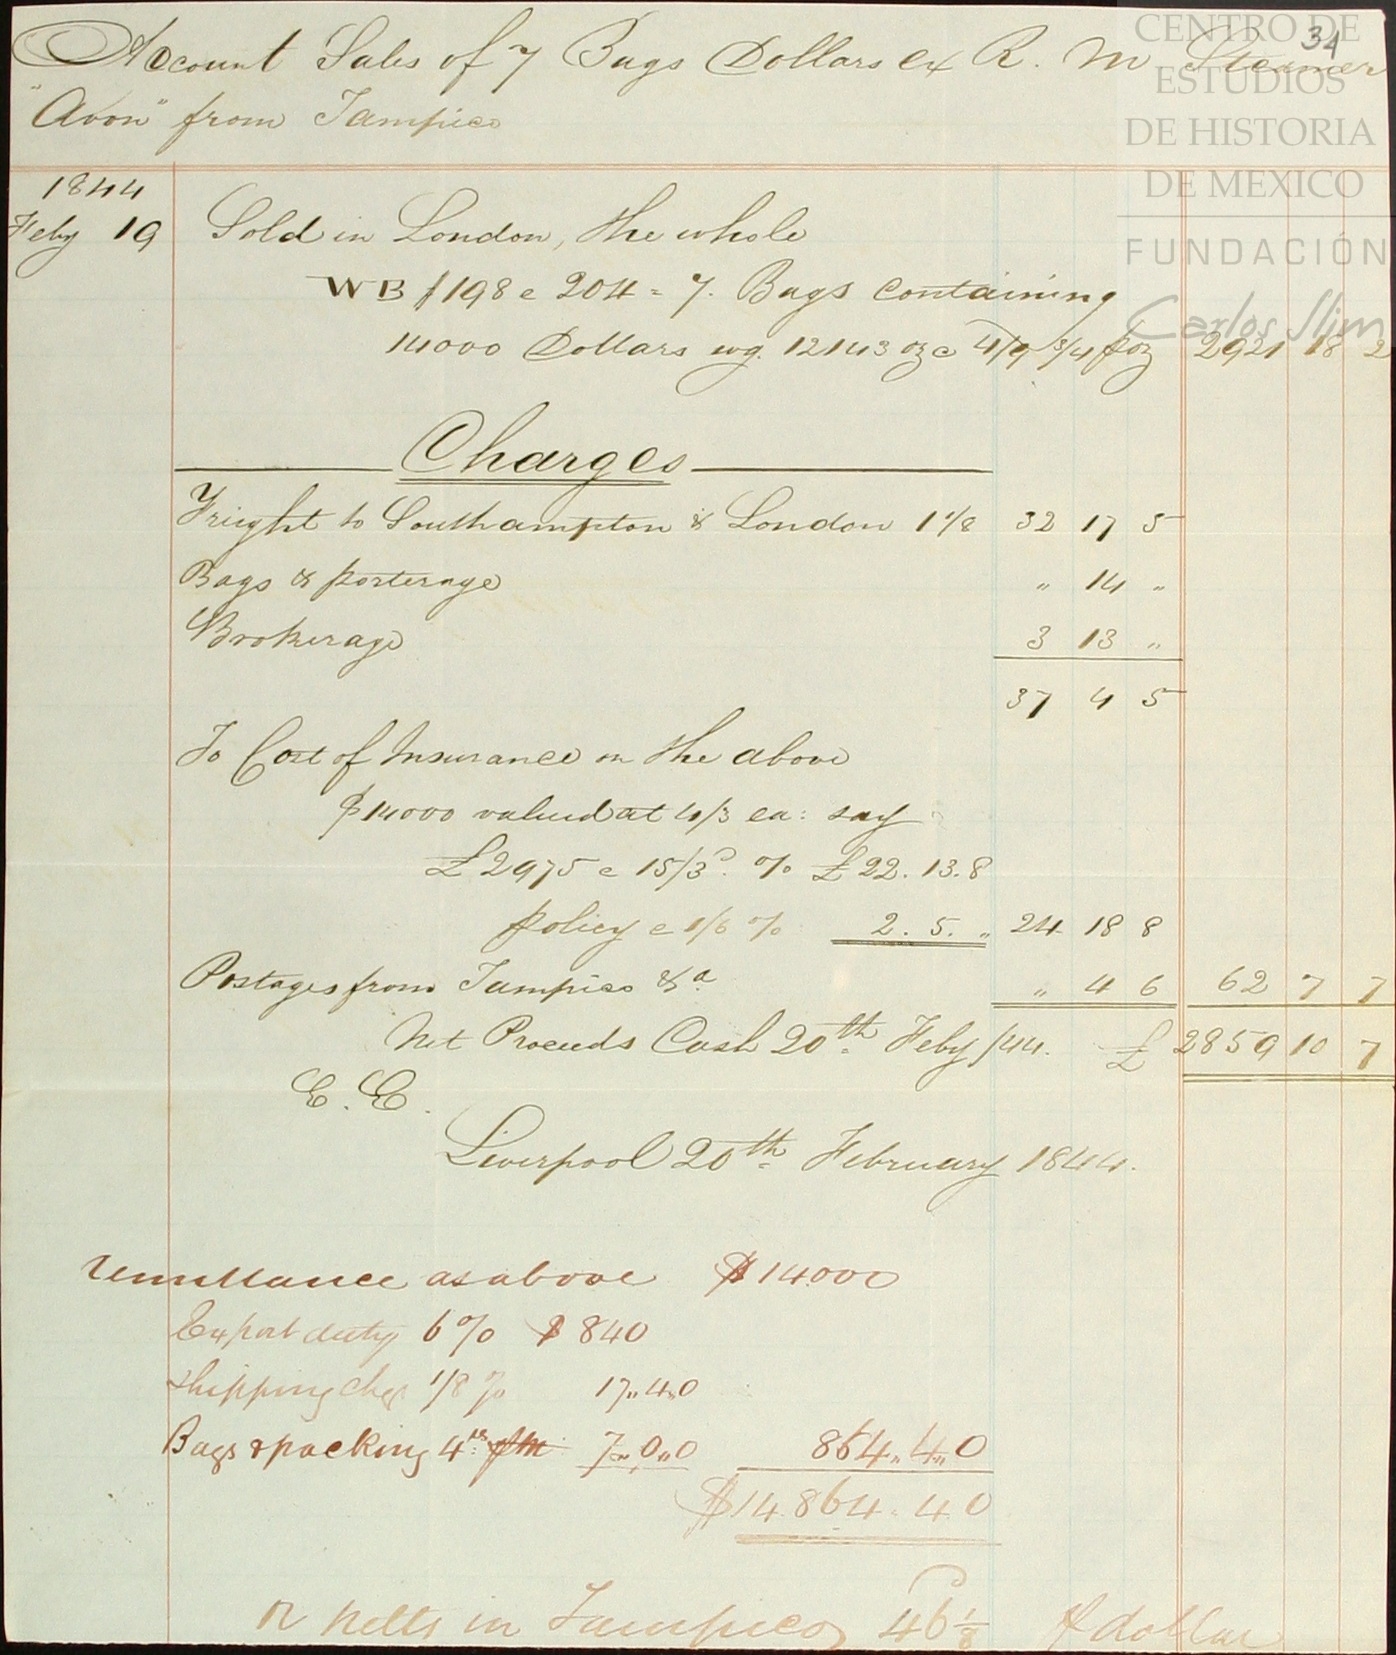 34
CENTRO DE
ESTUDIOS
DE HISTORIA
DE MEXICO
FUNDACIÓN
Carlos Slim
Account Sales of 7 Bags Dollars ex R. M Steamer
"Avon" from Tampico
1844
Feby 19 Sold in London, the whole
WB / 198 @ 204 = 7. Bags containing
14000 Dollars wg. 12143 oz @ 4/9 3/4 p oz 2921 18 2
Charges
Frieght to Southampton & London 1 1/8 32 17 5
Bags & porterage " 14 "
Brokerage 3 13 "
37 4 5
To Cost of Insurance on the above
$14000 valued at 4/3 ea: say
£2975 @ 15/3d. % £22. 13. 8
policy @ 1/6 % 2. 5. " 24 18 8
Postages from Tampico &a. " 4 6 62 7 7
Net Proceeds Cash 20th Feby /44. £ 2859 10 7
E. E.
Liverpool 20th February 1844.
remittance as above $14000
Export duty 6% $840
Shipping chgs 1/8 % 17.,4.,0
Bags & packing 4rs 7.,0.,0 864.,4.,0
$14.864.4.0
or netts in Tampico 46 1/8 p dollar